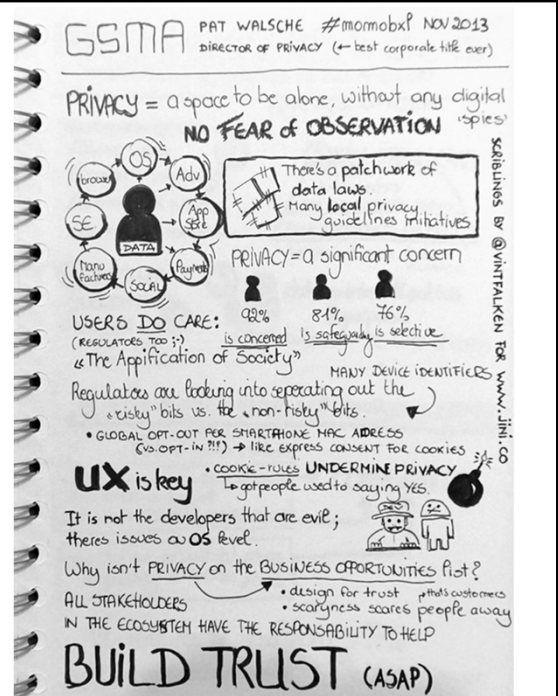 GSMA
PAT WALSCHE #mormobxl NOV 2013
DIRECTOR OF PRIVACY (← best corporate title ever)
PRIVACY = a space to be alone, without any digital 'spies'
NO FEAR of OBSERVATION
OS
Adv
App Store
Payments
Social
Manufacturers
SE
browser
DATA
There's a patchwork of
data laws.
Many local privacy
guidelines initiatives
PRIVACY = a significant concern
92% 81% 76%
is concerned is safeguarding is selective
USERS DO CARE:
(REGULATORS TOO ;-)
"The Appification of Society"
MANY DEVICE IDENTIFIERS
Regulators are looking into seperating out the
"risky" bits vs. the "non-risky" bits.
• GLOBAL OPT-OUT PER SMARTPHONE MAC ADDRESS
(VS. OPT-IN ?!!) → like EXPRESS CONSENT FOR COOKIES
UX is key
• COOKIE-RULES UNDERMINE PRIVACY
↳ got people used to saying YES.
It is not the developers that are evil;
theres issues on OS level.
DEV
Why isn't PRIVACY on the BUSINESS OPPORTUNITIES list?
• design for trust
that's customers
• scaryness scares people away
ALL STAKEHOLDERS
IN THE ECOSYSTEM HAVE THE RESPONSABILITY TO HELP
BUILD TRUST (ASAP)
SCRIBLINGS BY @VINTFALKEN FOR WWW.JINI.CO